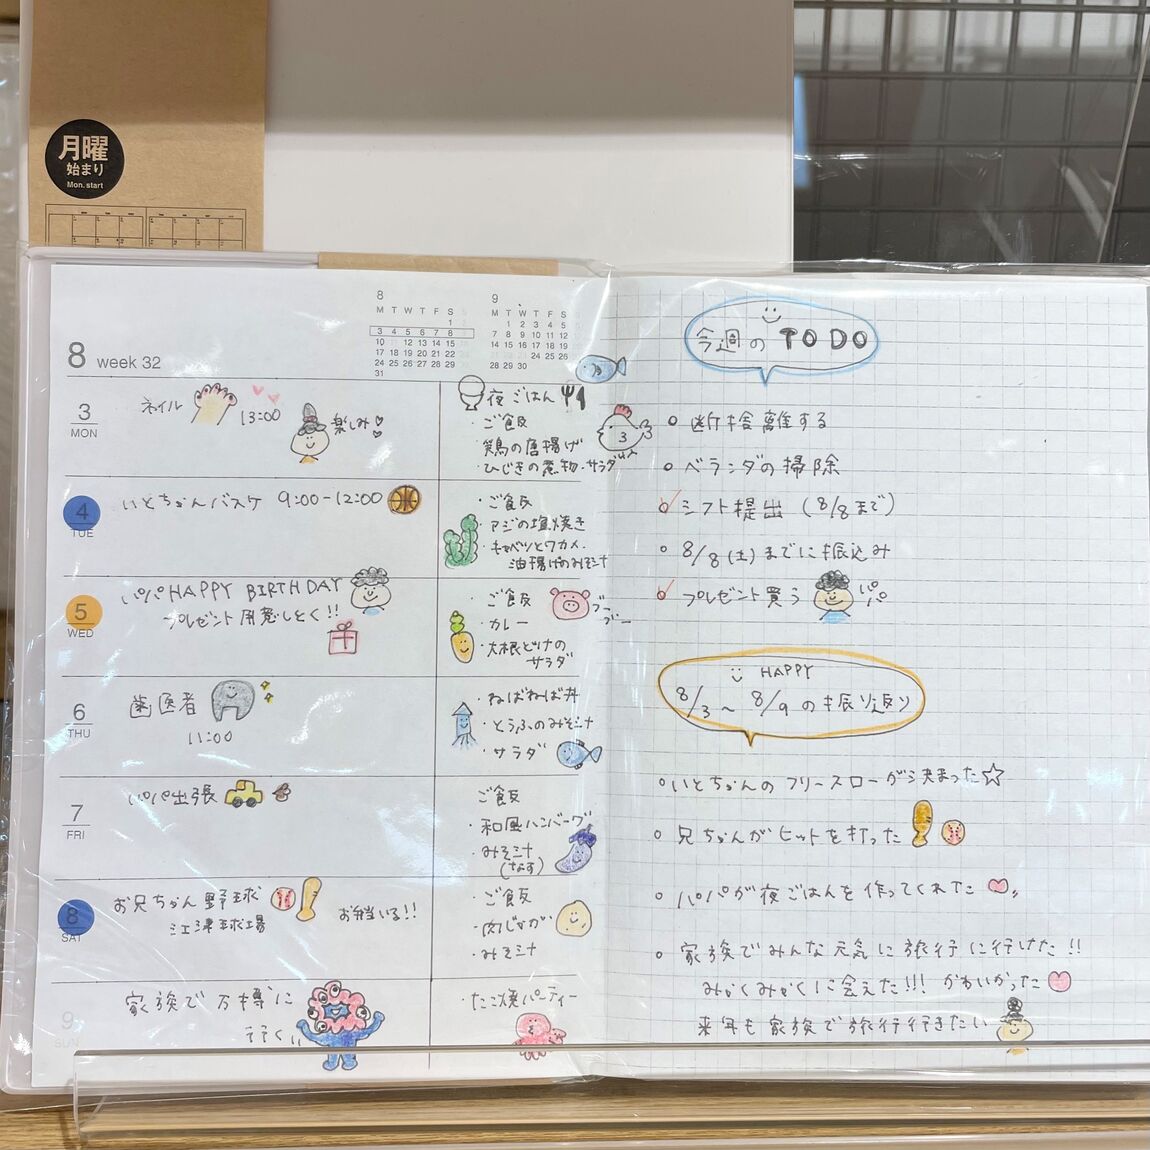 月曜
始まり
Mon. start
8 week 32
8
M T W T F S
1
3 4 5 6 7 8
10 11 12 13 14 15
17 18 19 20 21 22
24 25 26 27 28 29
31
9
M T W T F S
1 2 3 4 5
7 8 9 10 11 12
14 15 16 17 18 19
24 25 26
28 29 30
3
MON
ネイル
13:00
楽しみ
夜ごはん
・ご飯
・鶏の唐揚げ
・ひじきの煮物・サラダ
4
TUE
いとちゃんバスケ 9:00-12:00
・ご飯
・アジの塩焼き
・キャベツとワカメ、
油揚げのみそ汁
5
WED
パパHAPPY BIRTHDAY
プレゼント用意しとく!!
・ご飯
・カレー
・大根とツナの
サラダ
ブー
ブー
6
THU
歯医者
11:00
・ねばねば丼
・とうふのみそ汁
・サラダ
7
FRI
パパ出張
ご飯
・和風ハンバーグ
・みそ汁
(なす)
8
SAT
お兄ちゃん野球
江津球場
お弁当いる!!
・ご飯
・肉じゃが
・みそ汁
9
SUN
家族で万博に
行く!!
・たこ焼パーティー
今週のTO DO
○断捨離する
○ベランダの掃除
○シフト提出(8/8まで)
○8/8(土)までに振込み
○プレゼント買う
パパ
HAPPY
8/3〜8/9の振り返り
○いとちゃんのフリースローが決まった☆
○兄ちゃんがヒットを打った
○パパが夜ごはんを作ってくれた
○家族でみんな元気に旅行に行けた!!
みゃくみゃくに会えた!!! かわいかった
来年も家族で旅行行きたい